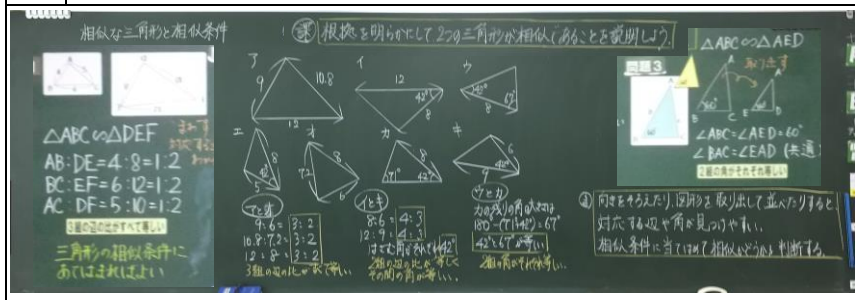 相似な三角形と相似条件
△ABC∽△DEF
AB:DE=4:8=1:2
BC:EF=6:12=1:2
AC:DF=5:10=1:2
3組の辺の比がすべて等しい
三角形の相似条件に
あてはまればよい
課 根拠を明らかにして2つの三角形が相似であることを説明しよう。
ア
9
10.8
12
イ
12
42°
8
ウ
42°
67°
8
エ
8
42°
5
オ
7.2
8
6
カ
8
71°
42°
キ
6
42°
9
アとオ
9:6=3:2
10.8:7.2=3:2
12:8=3:2
3組の辺の比がすべて等しい
イとキ
8:6=4:3
12:9=4:3
はさむ角がそれぞれ42°
2組の辺の比が等しく
その間の角が等しい。
ウとカ
カの残りの角の大きさは
180-(71+42)=67°
42°と67°が等しい
2組の角がそれぞれ等しい。
問題3
△ABC∽△AED
取り出す
A
A
60°
B
C
E
D
∠ABC=∠AED=60°
∠BAC=∠EAD(共通)
2組の角がそれぞれ等しい
向きをそろえたり、図形を取り出して並べたりすると
対応する辺や角が見つけやすい。
相似条件に当てはめて相似かどうか判断する。